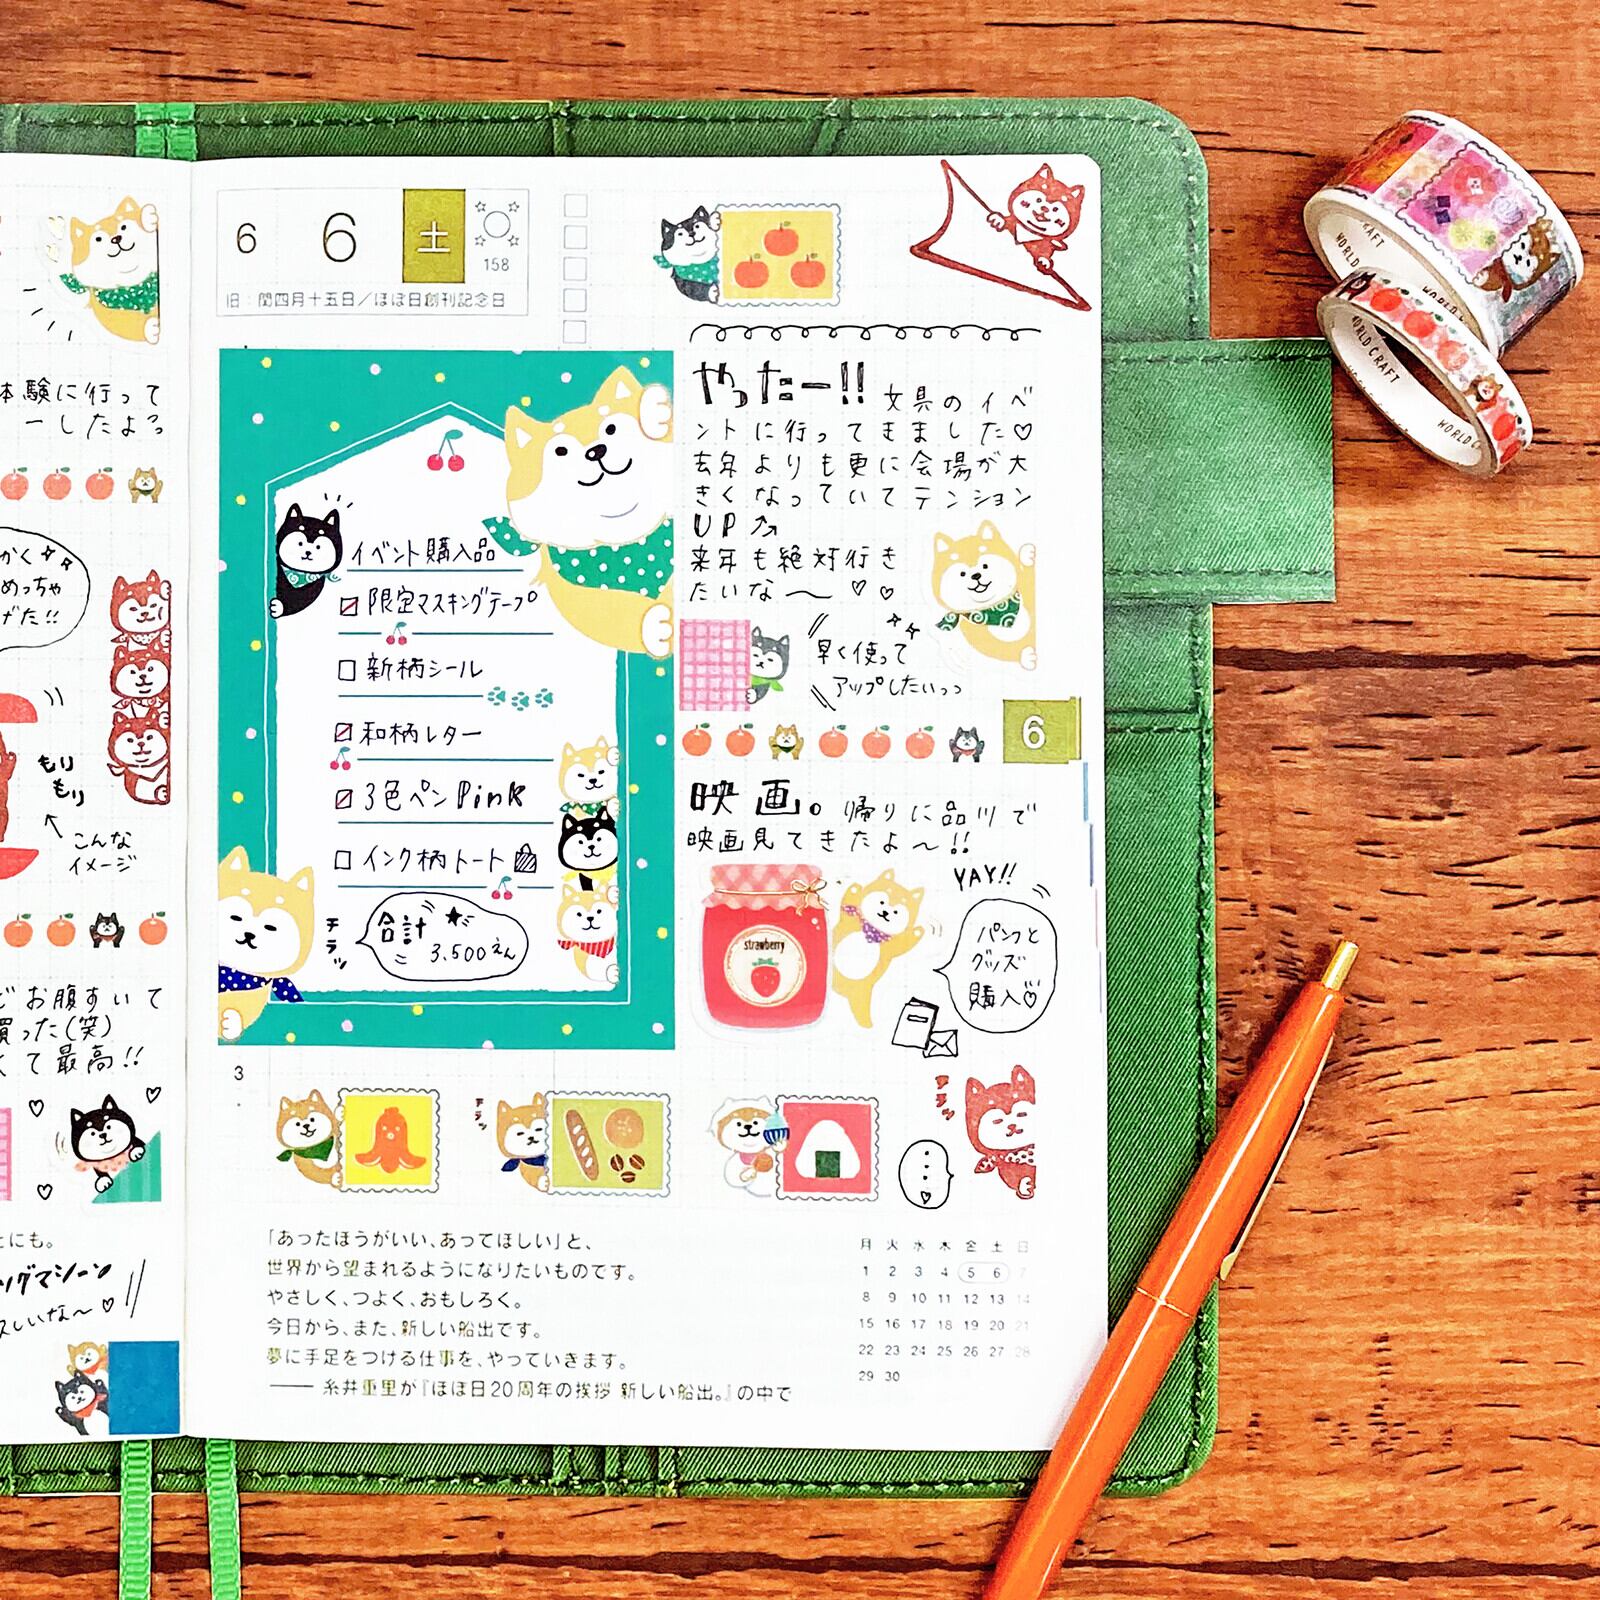 体験に行って
ーしたよっ
かく
めっちゃ
げた!!
もり
もり
こんな
イメージ
どお腹すいて
買った(笑)
くて最高!!
とにも。
ングマシーン
しいな〜♡
6 6 土
158
旧:閏四月十五日/ほぼ日創刊記念日
イベント購入品
限定マスキングテープ
新柄シール
和柄レター
3色ペン Pink
インク柄トート
チラッ
合計
3.500えん
3
やったー!! 文具のイベ
ントに行ってきました♡
去年よりも更に会場が大
きくなっていてテンション
UP
来年も絶対行き
たいな〜♡♡
早く使って
アップしたいっっ
6
映画。帰りに品川で
映画見てきたよ〜!!
YAY!!
strawberry
パンフと
グッズ
購入♡
チラッ
チラッ
「あったほうがいい、あってほしい」と、
世界から望まれるようになりたいものです。
やさしく、つよく、おもしろく。
今日から、また、新しい船出です。
夢に手足をつける仕事を、やっていきます。
—— 糸井重里が『ほぼ日20周年の挨拶 新しい船出。』の中で
月 火 水 木 金 土 日
1 2 3 4 5 6 7
8 9 10 11 12 13 14
15 16 17 18 19 20 21
22 23 24 25 26 27 28
29 30
WORLD CRAFT
WORLD
WORLD CRAFT
WORLD C